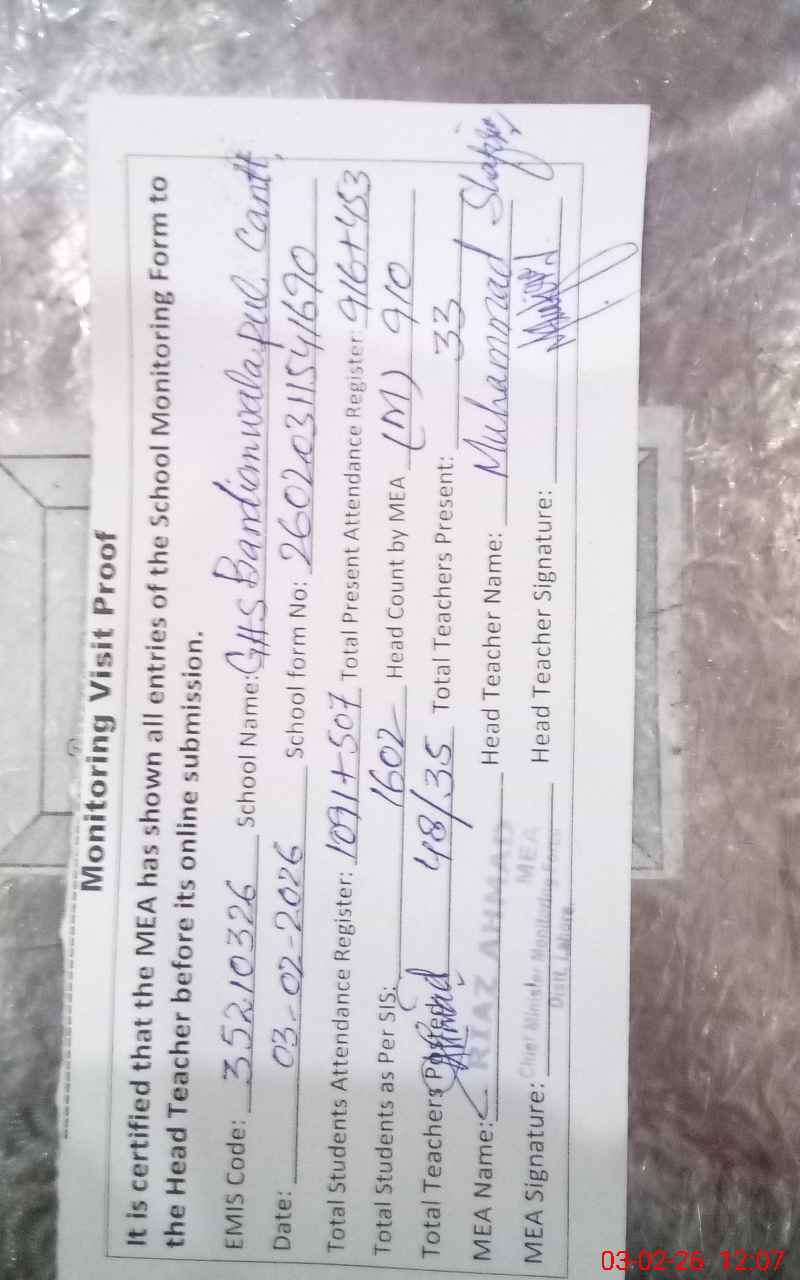 Monitoring Visit Proof
It is certified that the MEA has shown all entries of the School Monitoring Form to
the Head Teacher before its online submission.
EMIS Code: 35210326 School Name: GHS Bandianwalapul Cantt
Date: 03-02-2026 School form No: 260203115541690
Total Students Attendance Register: 1091+507 Total Present Attendance Register: 916+453
Total Students as Per SIS: 1602 Head Count by MEA (M) 910
Total Teachers Posted 48/35 Total Teachers Present: 33
MEA Name: RIAZ AHMAD Head Teacher Name: Muhammad Shafiq
MEA
Chief Minister Monitoring Force
Distt. Lahore
MEA Signature: Head Teacher Signature:
03-02-26 12:07